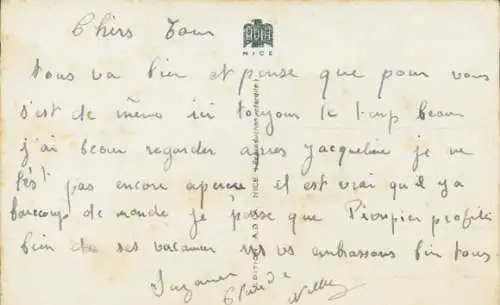 Chers Tous
NICE
tous va bien et pense que pour vous
s'est de même ici toujour le temp beau
j'ai beau regarder apres Jacqueline je ne
l'est pas encore apercu il est vrai qu'il y a
beaucoup de monde je pense que profite
bien de ses vacances vs embrassons bien tous
Suzanne Claude
EDITIONS A.D.I.A. NICE Reproduction interdite